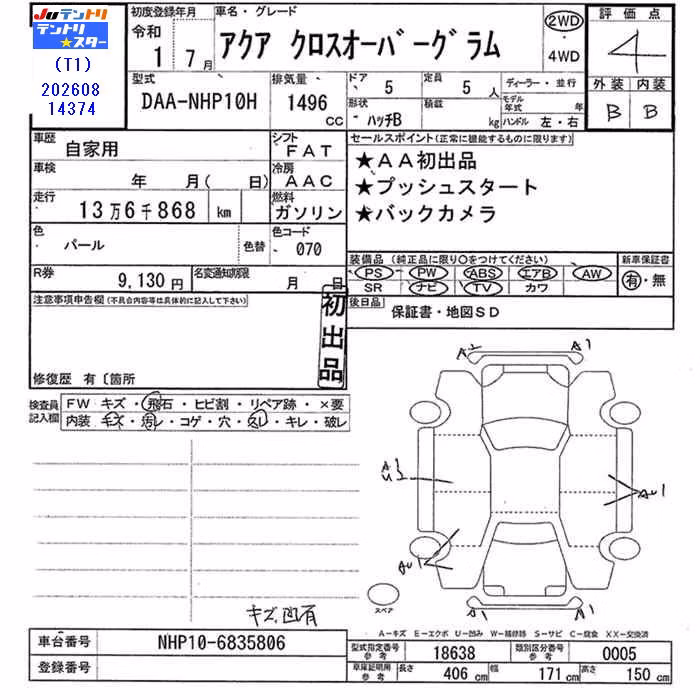 Juテントリ
テントリ
★スター
(T1)
202608
14374
初度登録年月
令和
1 7月
車名・グレード
アクア クロスオーバーグラム
2WD
・
4WD
評価点
4
外装 内装
B B
型式
DAA-NHP10H
排気量
1496 CC
ドア 5
形状 ハッチB
定員 5 人
積載 kg
ディーラー・並行
モデル年式 年
ハンドル 左・右
車歴 自家用
シフト FAT
車検 年 月( 日)
冷房 AAC
走行 13万6千868 km
燃料 ガソリン
色 パール
色替
色コード 070
R券 9,130円
名変通知期限 月 日
セールスポイント(正常に機能するものに限ります)
★AA初出品
★プッシュスタート
★バックカメラ
装備品(純正品に限り○をつけてください)
新車保証書
PS PW ABS エアB AW
SR ナビ TV カワ
有・無
後日品 保証書・地図SD
注意事項申告欄(不具合内容等は具体的に記入して下さい)
初出品
修復歴 有〔箇所
検査員記入欄
FW キズ・飛石・ヒビ割・リペア跡・×要
内装・キズ・汚レ・コゲ・穴・スレ・キレ・破レ
A2 A1
AU1
AU1
A1 A1
スペア
キズ,凹有
A−キズ E−エクボ U−凹み W−補修跡 S−サビ C−腐食 XX−交換済
車台番号 NHP10-6835806
登録番号
型式指定番号参考 18638
類別区分番号参考 0005
車庫証明用参考 長さ 406 cm 幅 171 cm 高さ 150 cm